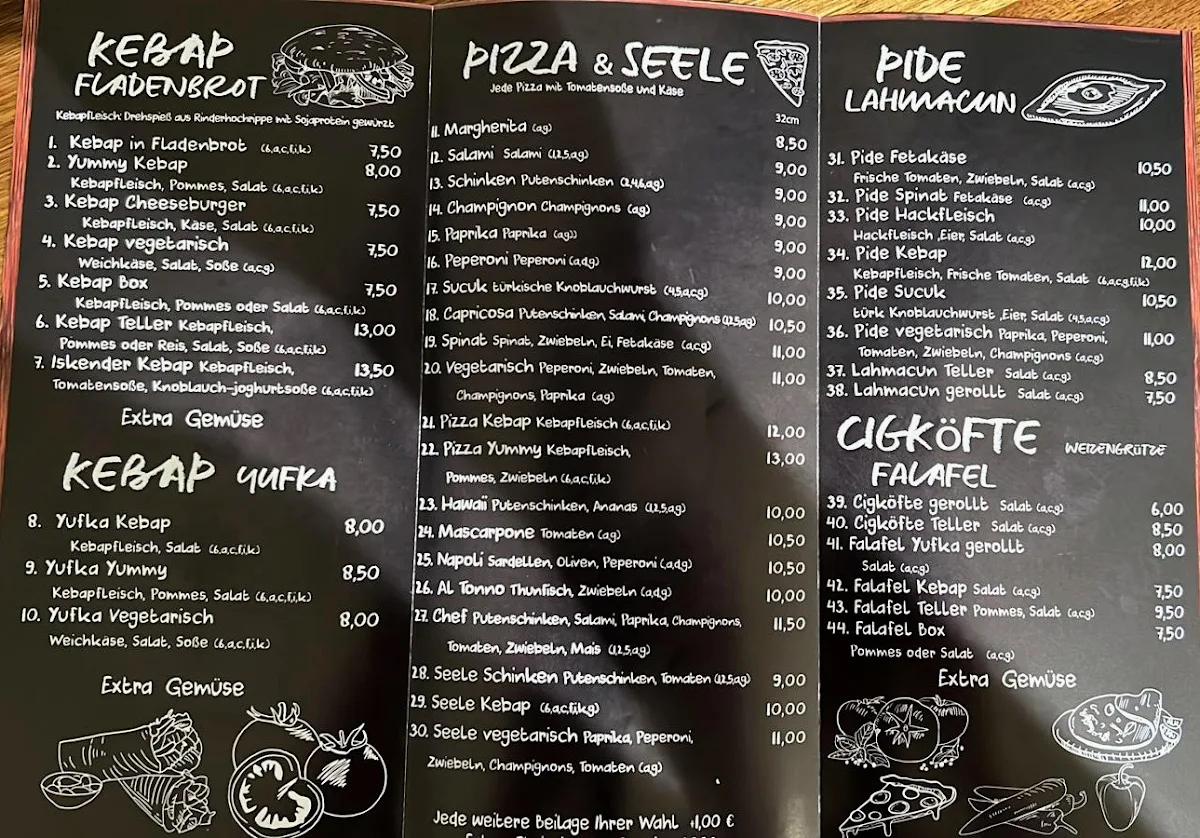 KEBAP
FLADENBROT
Kebapfleisch: Drehspieß aus Rinderhochrippe mit Sojaprotein gewürzt
1. Kebap in Fladenbrot (6,a,c,f,i,k) 7,50
2. Yummy Kebap 8,00
Kebapfleisch, Pommes, Salat (6,a,c,f,i,k)
3. Kebap Cheeseburger 7,50
Kebapfleisch, Käse, Salat (6,a,c,f,i,k)
4. Kebap vegetarisch 7,50
Weichkäse, Salat, Soße (a,c,g)
5. Kebap Box 7,50
Kebapfleisch, Pommes oder Salat (6,a,c,f,i,k)
6. Kebap Teller Kebapfleisch, 13,00
Pommes oder Reis, Salat, Soße (6,a,c,f,i,k)
7. Iskender Kebap Kebapfleisch, 13,50
Tomatensoße, Knoblauch-joghurtsoße (6,a,c,f,i,k)
Extra Gemüse
KEBAP YUFKA
8. Yufka Kebap 8,00
Kebapfleisch, Salat (6,a,c,f,i,k)
9. Yufka Yummy 8,50
Kebapfleisch, Pommes, Salat (6,a,c,f,i,k)
10. Yufka Vegetarisch 8,00
Weichkäse, Salat, Soße (6,a,c,f,i,k)
Extra Gemüse
PIZZA & SEELE
Jede Pizza mit Tomatensoße und Käse
32cm
11. Margherita (a,g) 8,50
12. Salami Salami (1,2,5,a,g) 9,00
13. Schinken Putenschinken (2,4,6,a,g) 9,00
14. Champignon Champignons (a,g) 9,00
15. Paprika Paprika (a,g)) 9,00
16. Peperoni Peperoni (a,d,g) 9,00
17. Sucuk türkische Knoblauchwurst (4,5,a,c,g) 10,00
18. Capricosa Putenschinken, Salami, Champignons (1,2,5,a,g) 10,50
19. Spinat Spinat, Zwiebeln, Ei, Fetakäse (a,c,g) 11,00
20. Vegetarisch Peperoni, Zwiebeln, Tomaten, 11,00
Champignons, Paprika (a,g)
21. Pizza Kebap Kebapfleisch (6,a,c,f,i,k) 12,00
22. Pizza Yummy Kebapfleisch, 13,00
Pommes, Zwiebeln (6,a,c,f,i,k)
23. Hawaii Putenschinken, Ananas (1,2,5,a,g) 10,00
24. Mascarpone Tomaten (a,g) 10,50
25. Napoli Sardellen, Oliven, Peperoni (a,d,g) 10,50
26. Al Tonno Thunfisch, Zwiebeln (a,d,g) 10,00
27. Chef Putenschinken, Salami, Paprika, Champignons, 11,50
Tomaten, Zwiebeln, Mais (1,2,5,a,g)
28. Seele Schinken Putenschinken, Tomaten (1,2,5,a,g) 9,00
29. Seele Kebap (6,a,c,f,i,k,g) 10,00
30. Seele vegetarisch Paprika, Peperoni, 11,00
Zwiebeln, Champignons, Tomaten (a,g)
Jede weitere Beilage Ihrer Wahl +1,00 €
PIDE
LAHMACUN
31. Pide Fetakäse 10,50
Frische Tomaten, Zwiebeln, Salat (a,c,g)
32. Pide Spinat Fetakäse (a,c,g) 11,00
33. Pide Hackfleisch 10,00
Hackfleisch ,Eier, Salat (a,c,g)
34. Pide Kebap 12,00
Kebapfleisch, Frische Tomaten, Salat (6,a,c,g,f,i,k)
35. Pide Sucuk 10,50
türk Knoblauchwurst ,Eier, Salat (4,5,a,c,g)
36. Pide vegetarisch Paprika, Peperoni, 11,00
Tomaten, Zwiebeln, Champignons (a,c,g)
37. Lahmacun Teller Salat (a,c,g) 8,50
38. Lahmacun gerollt Salat (a,c,g) 7,50
CIGKÖFTE WEIZENGRÜTZE
FALAFEL
39. Cigköfte gerollt Salat (a,c,g) 6,00
40. Cigköfte Teller Salat (a,c,g) 8,50
41. Falafel Yufka gerollt 8,00
Salat (a,c,g)
42. Falafel Kebap Salat (a,c,g) 7,50
43. Falafel Teller Pommes, Salat (a,c,g) 9,50
44. Falafel Box 7,50
Pommes oder Salat (a,c,g)
Extra Gemüse